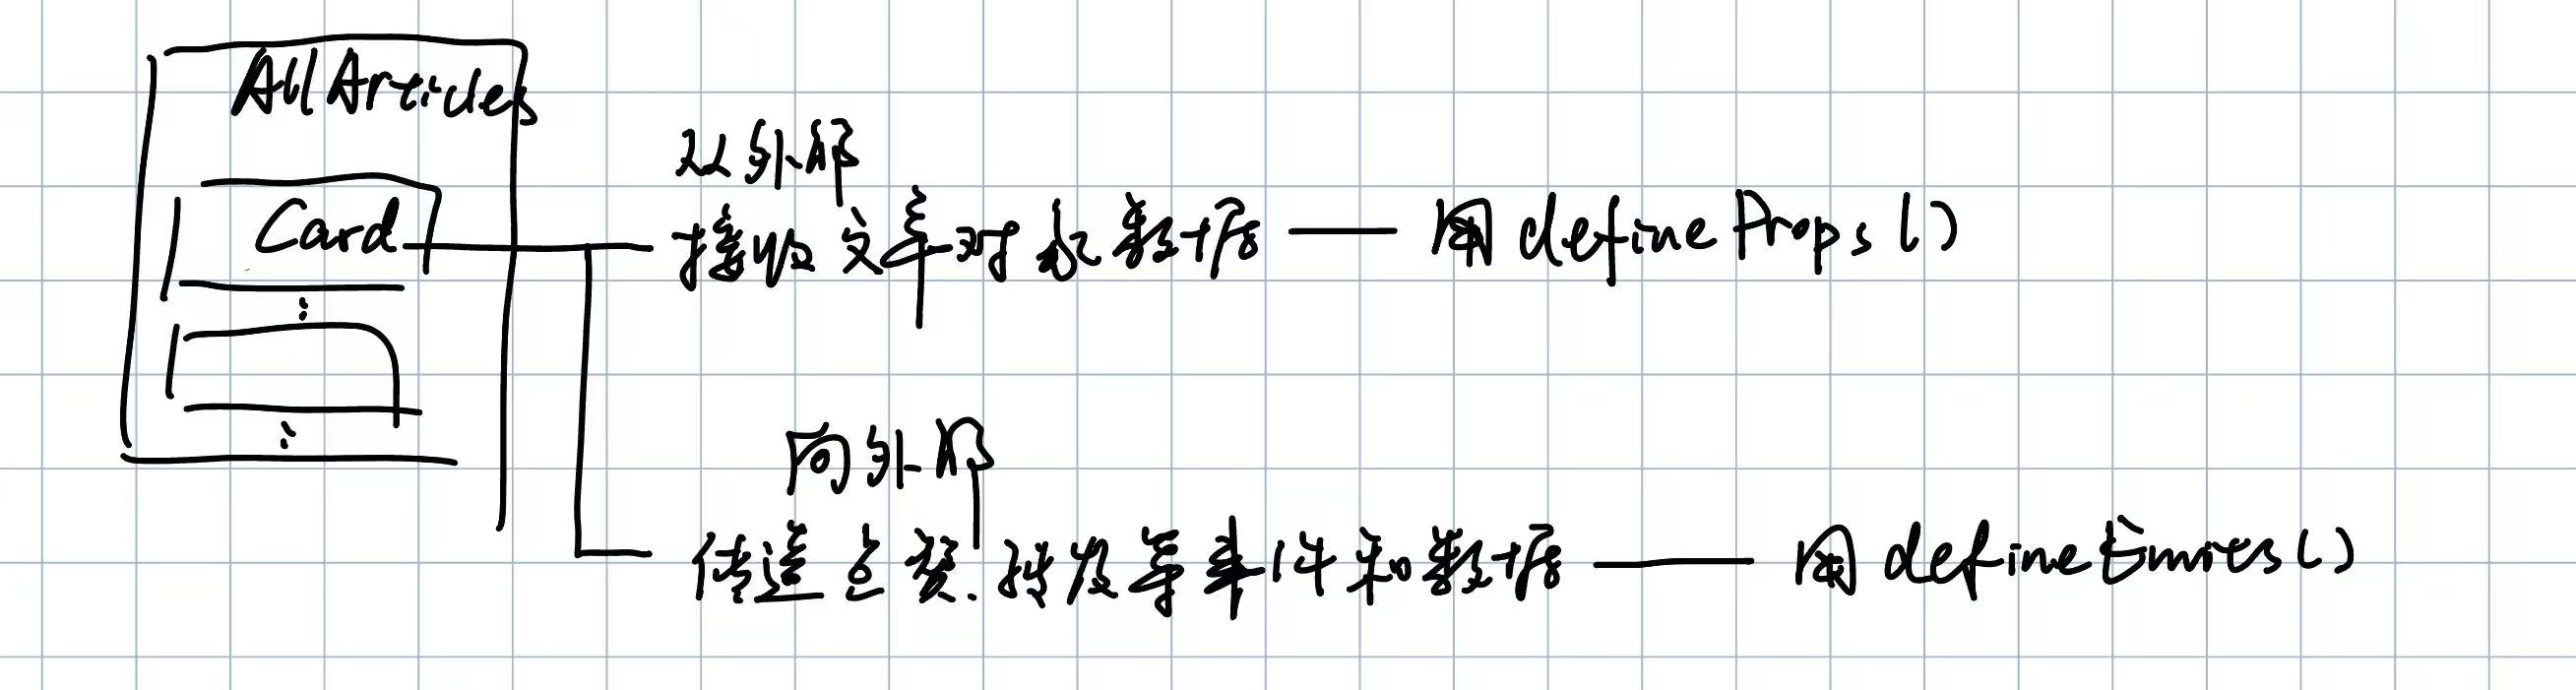 AllArticles
Card
从外部
接收文章对象数据 —— 用 defineProps()
向外部
传送点赞、转发等事件和数据 —— 用 defineEmits()